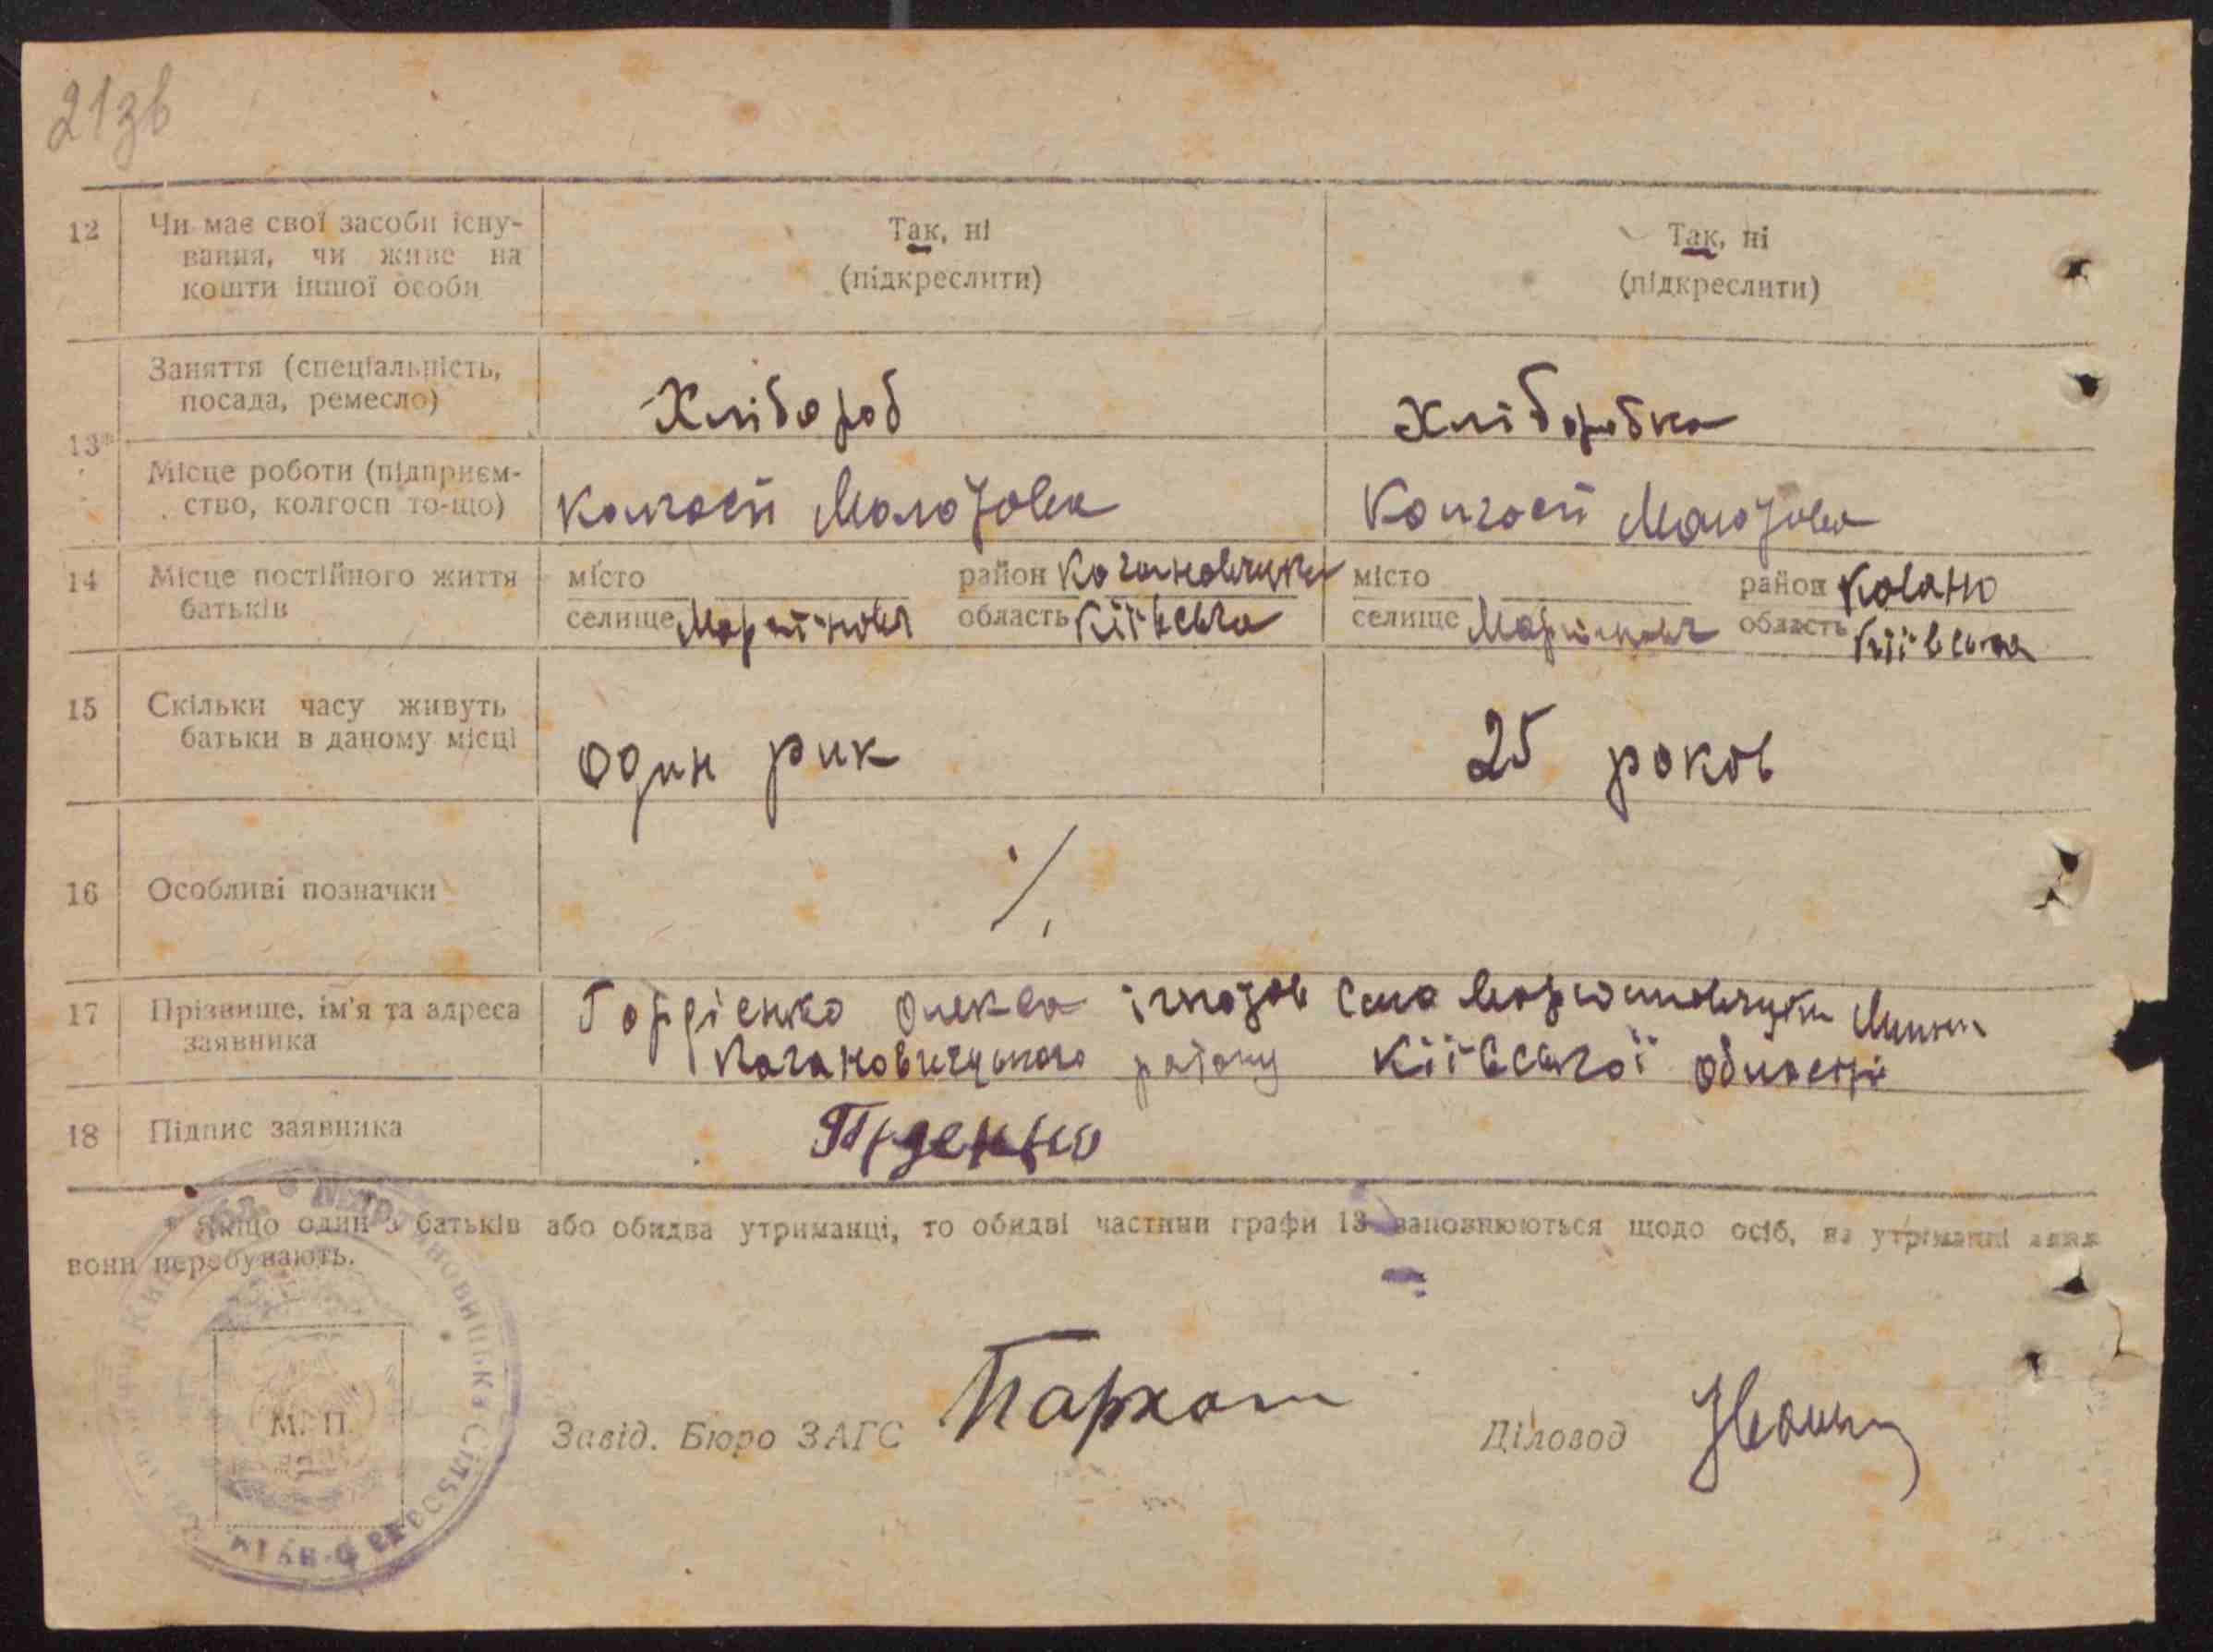 21зв
12 Чи має свої засоби існу- Так, ні Так, ні
вання, чи живе на (підкреслити) (підкреслити)
кошти іншої особи
Заняття (спеціальність, Хлібороб Хліборобка
посада, ремесло)
13*
Місце роботи (підприєм- Колгосп Молотова Колгосп Молотова
ство, колгосп то-що)
14 Місце постійного життя місто район місто район Кагано
батьків селище область Київська селище область Київська
15 Скільки часу живуть
батьки в даному місці один рик 25 роков
16 Особливі позначки ./.
17 Прізвище, ім'я та адреса Гордієнко Олекса Села
заявника Кагановичського району Київської області
18 Підпис заявника
* Якщо один з батьків або обидва утриманці, то обидві частини графи 13 заповнюються щодо осіб, на утриманні яких
вони перебувають.
М. П.
Завід. Бюро ЗАГС Діловод